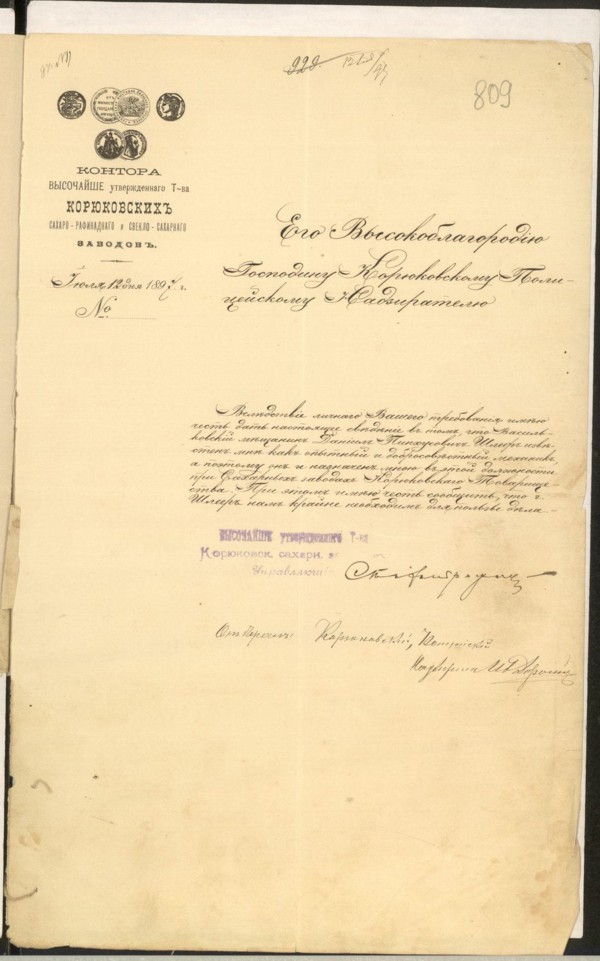 809
КОНТОРА
ВЫСОЧАЙШЕ утвержденнаго Т-ва
КОРЮКОВСКИХЪ
САХАРО-РАФИНАДНАГО и СВЕКЛО-САХАРНАГО
ЗАВОДОВЪ.
Іюля 12 дня 1897 г.
№
Его Высокоблагородію
Господину Корюковскому Поли-
цейскому Надзирателю
Вслѣдствіе личнаго Вашего требованія имѣю
честь дать настоящіе свѣдѣніе въ томъ, что Василь-
ковскій мѣщанинъ Даніилъ Пинхусовичъ Шлееръ извѣ-
стенъ мнѣ какъ опытный и добросовѣстный механикъ,
а поэтому онъ и назначенъ мною въ этой должности
при Сахарныхъ заводахъ Корюковскаго Товарище-
ства. При этомъ имѣю честь сообщить, что г.
Шлееръ намъ крайне необходимъ для пользы дѣла—
ВЫСОЧАЙШЕ утвержденнаго Т-ва
Корюковск. сахарн.
Управляющій
Корюковскій, Полицейскій